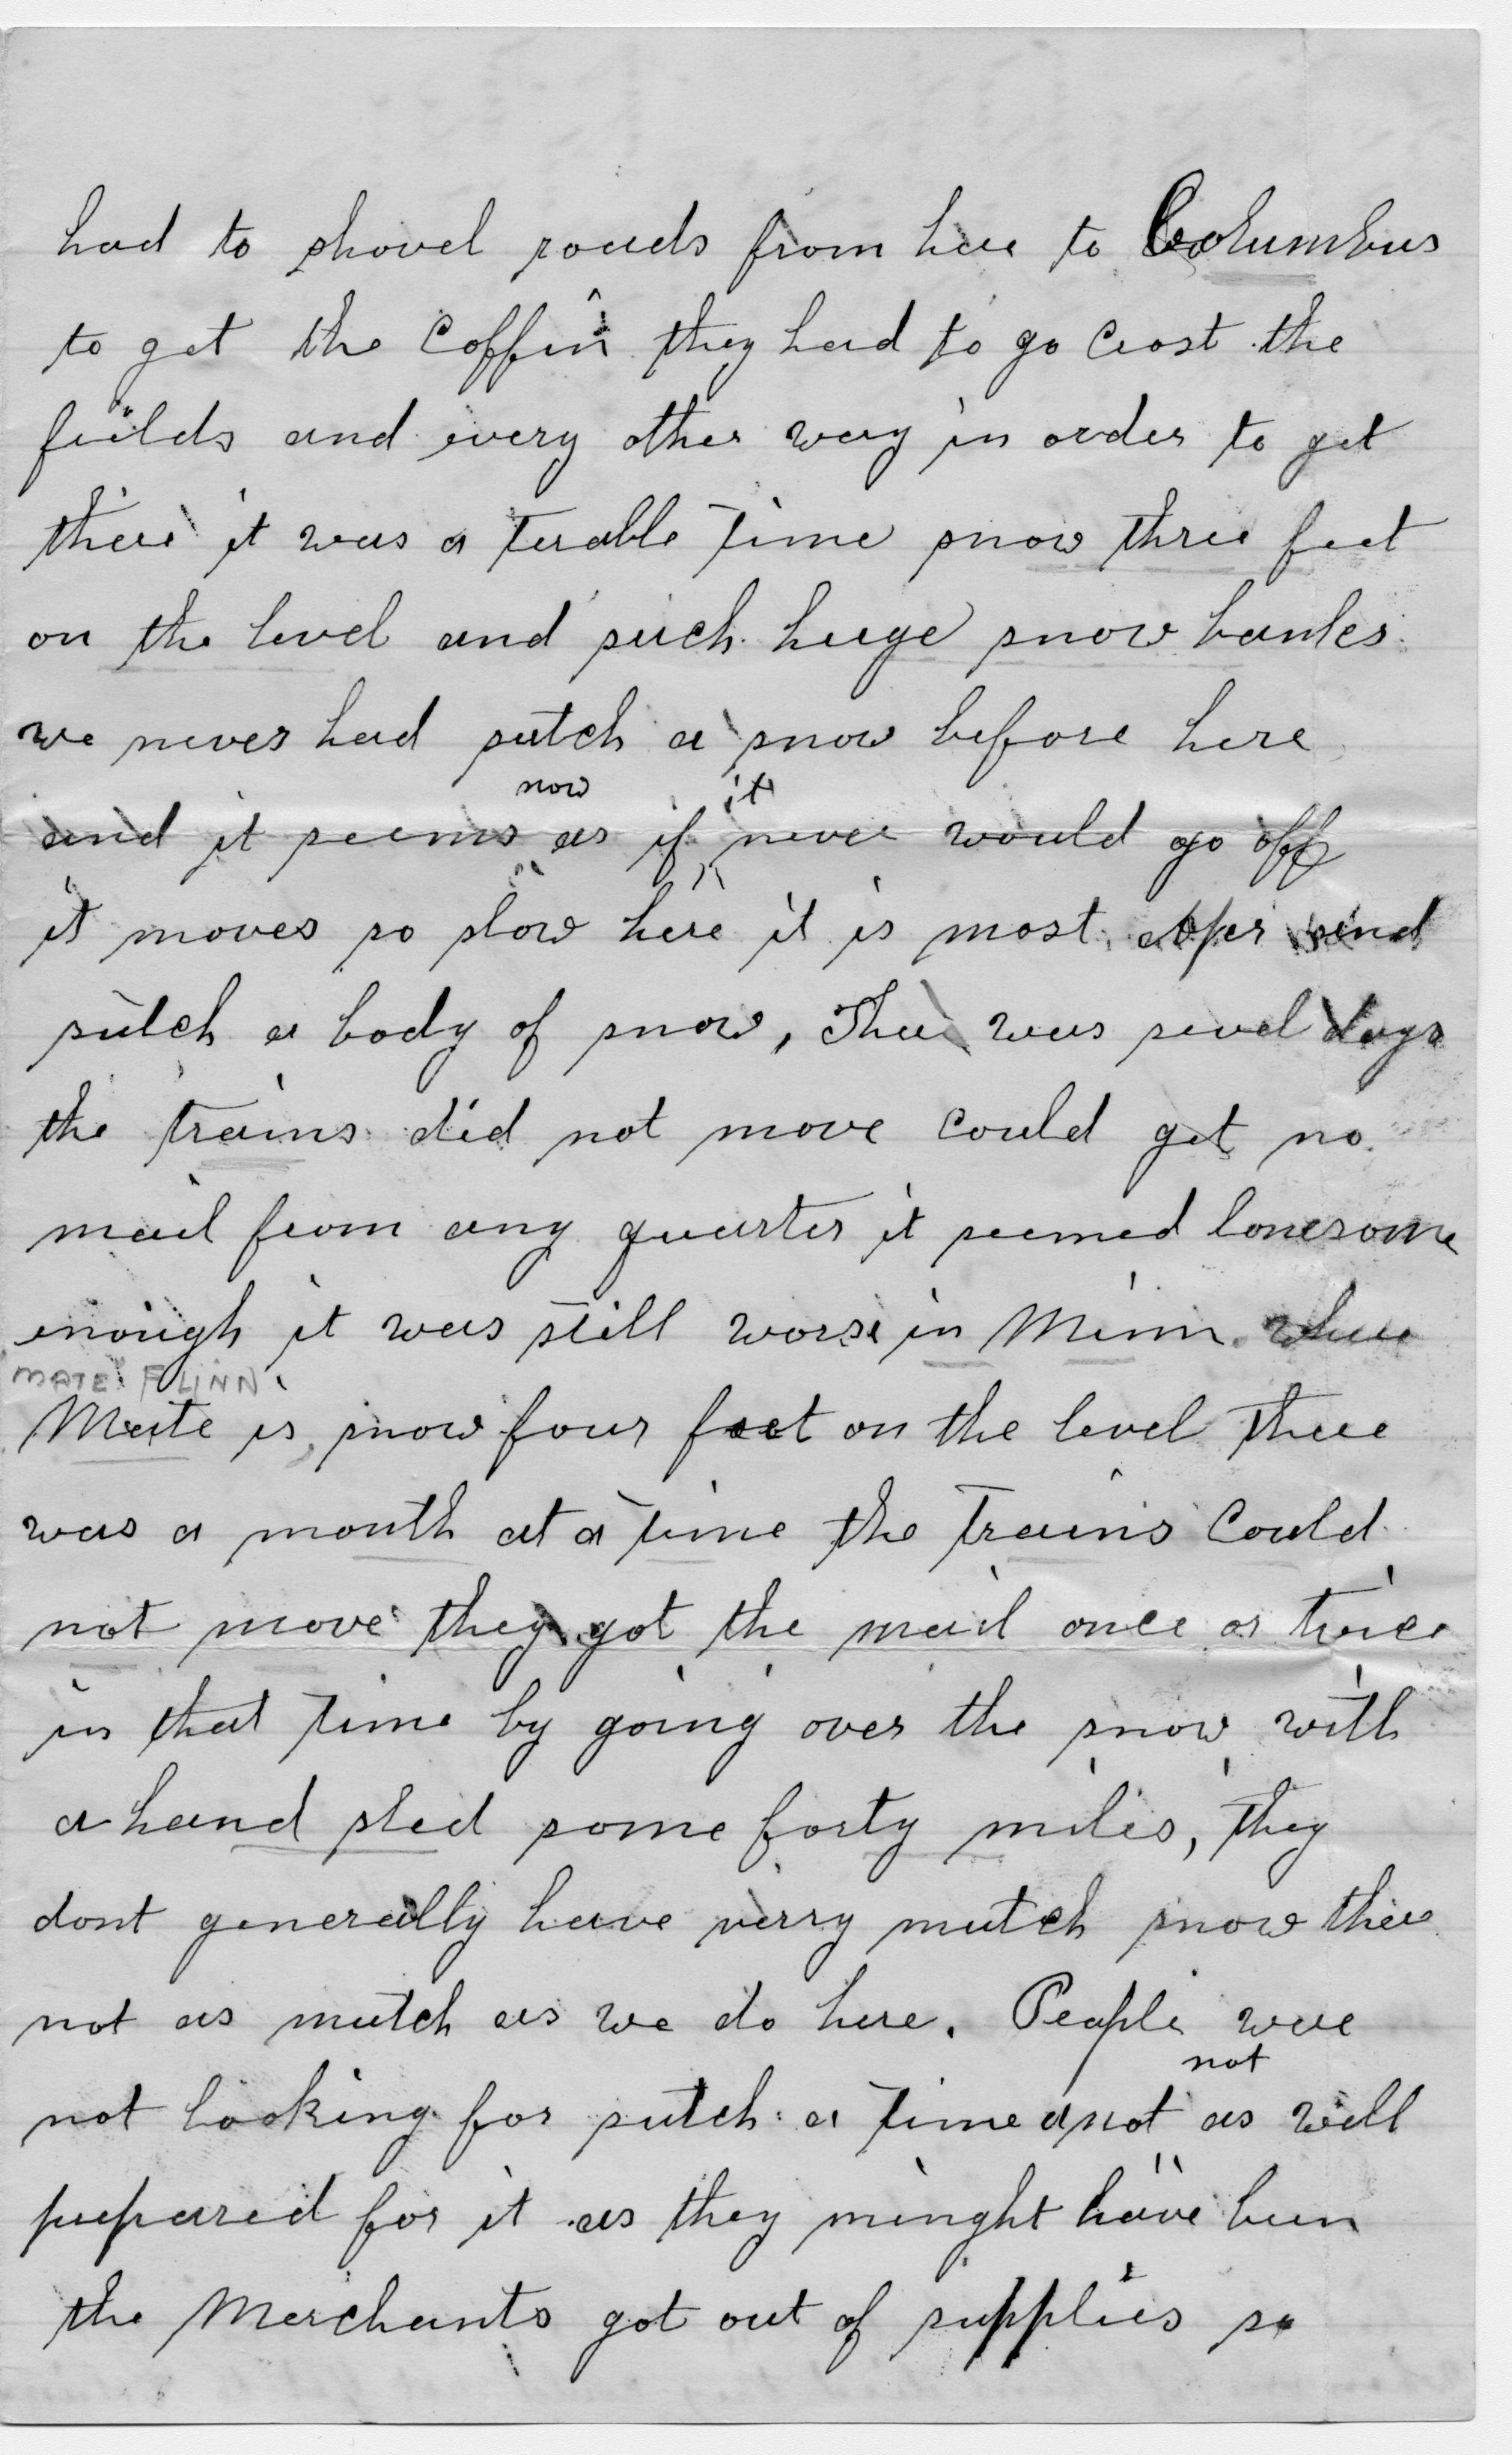 had to shovel roads from here to Columbus
to get the Coffin they had to go Crost the
fields and every other way in order to get
there it was a terable time snow three feet
on the level and such huge snow banks
we never had sutch a snow before here
now it
and it seems as if never would go off
it moves so slow here it is most and
sutch a body of snow, There was sevel days
the trains did not move could get no
mail from any quarter it seemed lonesome
enough it was still worse in Minn. where
MATE FLINN
Mate is, snow four feet on the level there
was a month at a time the trains Could
not move they got the mail once or twice
in that time by going over the snow with
a hand sled some forty miles, they
dont generally have verry mutch snow there
not as mutch as we do here. People were
not
not looking for sutch a time as well
prepared for it as they minght have been
the Merchants got out of supplies so